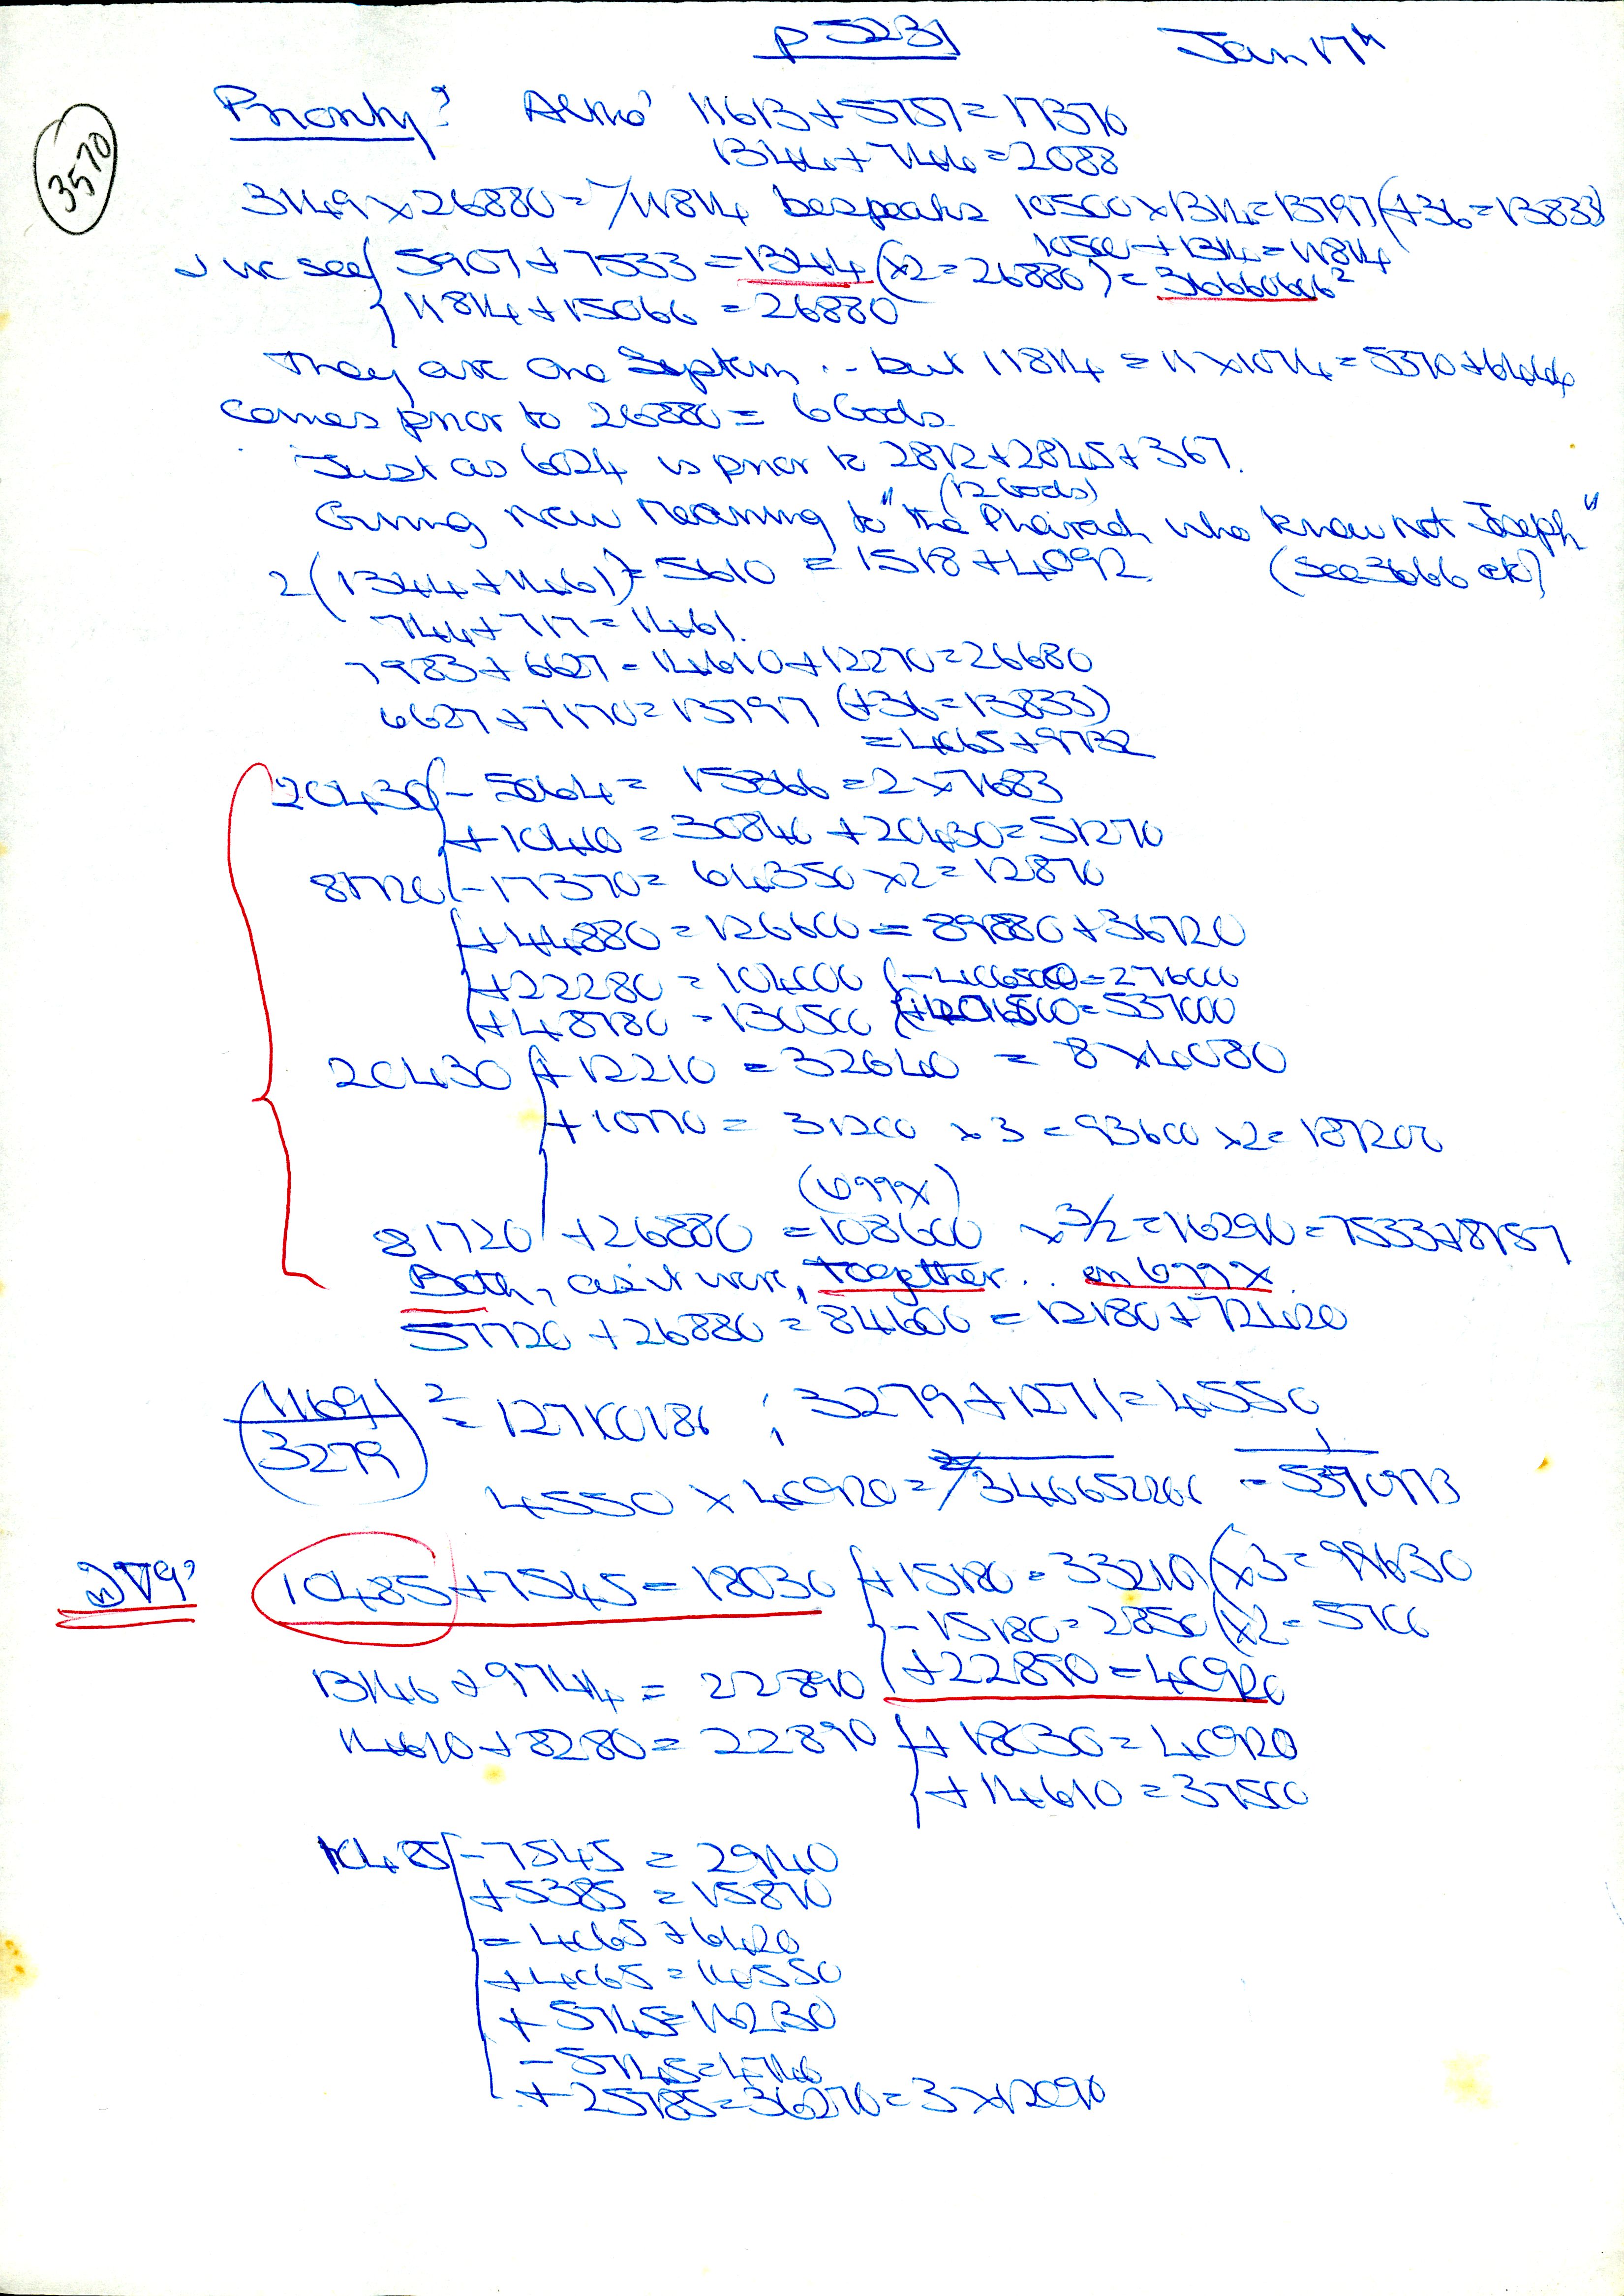 p 5231 Jan 17th
3570
Priority? Altho' 11613+5757=17370
1344+744=2088
3149×26880=√11814 bespeaks 10500×1314=13797(+36=13833)
10500+1314=11814
& we see 5907+7533=13444(×2=26880)=36660606²
11814+15066=26880
They are one System .. but 11814=11×1074=5370+6444
comes prior to 26880=6 Gods.
Just as 6024 is prior to 2812+2845+367.
(12 Gods)
Giving new meaning to "the Pharaoh who knew not Joseph"
2(1344+1461)=5610=1518+4092. (See 3666 etc)
744+717=1461.
7983+6627=14610+12270=26680
6627+7170=13797 (+36=13833)
=4065+9732
20430 -5064=15366=2×7683
+10410=30840+20430=51270
81720 -17370=64350×2=12870
+44880=126600=89880+36720
+22280=104000 =27600
+48780=130500 =537000
20430 +12210=32640=8×4080
+10770=31200×3=93600×2=187200
(6999x)
81720+26880=108600 ×3/2=16290=7533+8757
Both, as it were, together.. on 6999x
57720+26880=84600=12180+72420
(1169/3279)²=12710186; 3279+1271=4550
4550×40920=³√346652266 = 5370973
10485+7545=18030 +15180=33210(×3=99630
-15180=2850(×2=5700
13146+9744=22890 +22890=40920
14610+8280=22890 +18030=40920
+14610=37500
10485 -7545=2940
+5385=15870
=4065+6420
+4065=14550
+5745=16230
-5745=4740
+25785=36270=3×12090